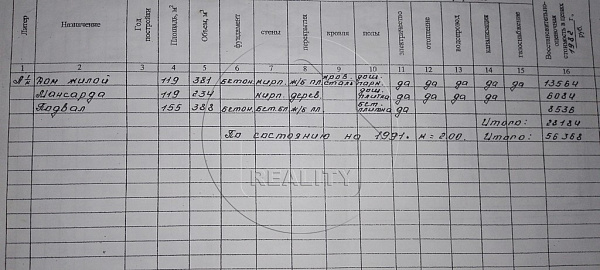 Литер Назначение Год постройки Площадь, м² Объем, м³ фундамент стены перекрытия кровля полы электричество отопление водопровод канализация газоснабжение Восстановительно-оценочная стоимость в ценах 1982 г. руб.
1 2 3 4 5 6 7 8 9 10 11 12 13 14 15 16
А½ Дом жилой 119 381 бетон. кирп. ж/б пл. кров. сталь дощ. парк. да да да да да 13564
Мансарда 119 234 кирп. дерев. дощ. плитка да да да да 6084
Подвал 155 388 бетон. бет.бл ж/б пл. бет. плитка да 8536
Итого: 28184
По состоянию на 1991г. к=2.00. Итого: 56368
REALITY